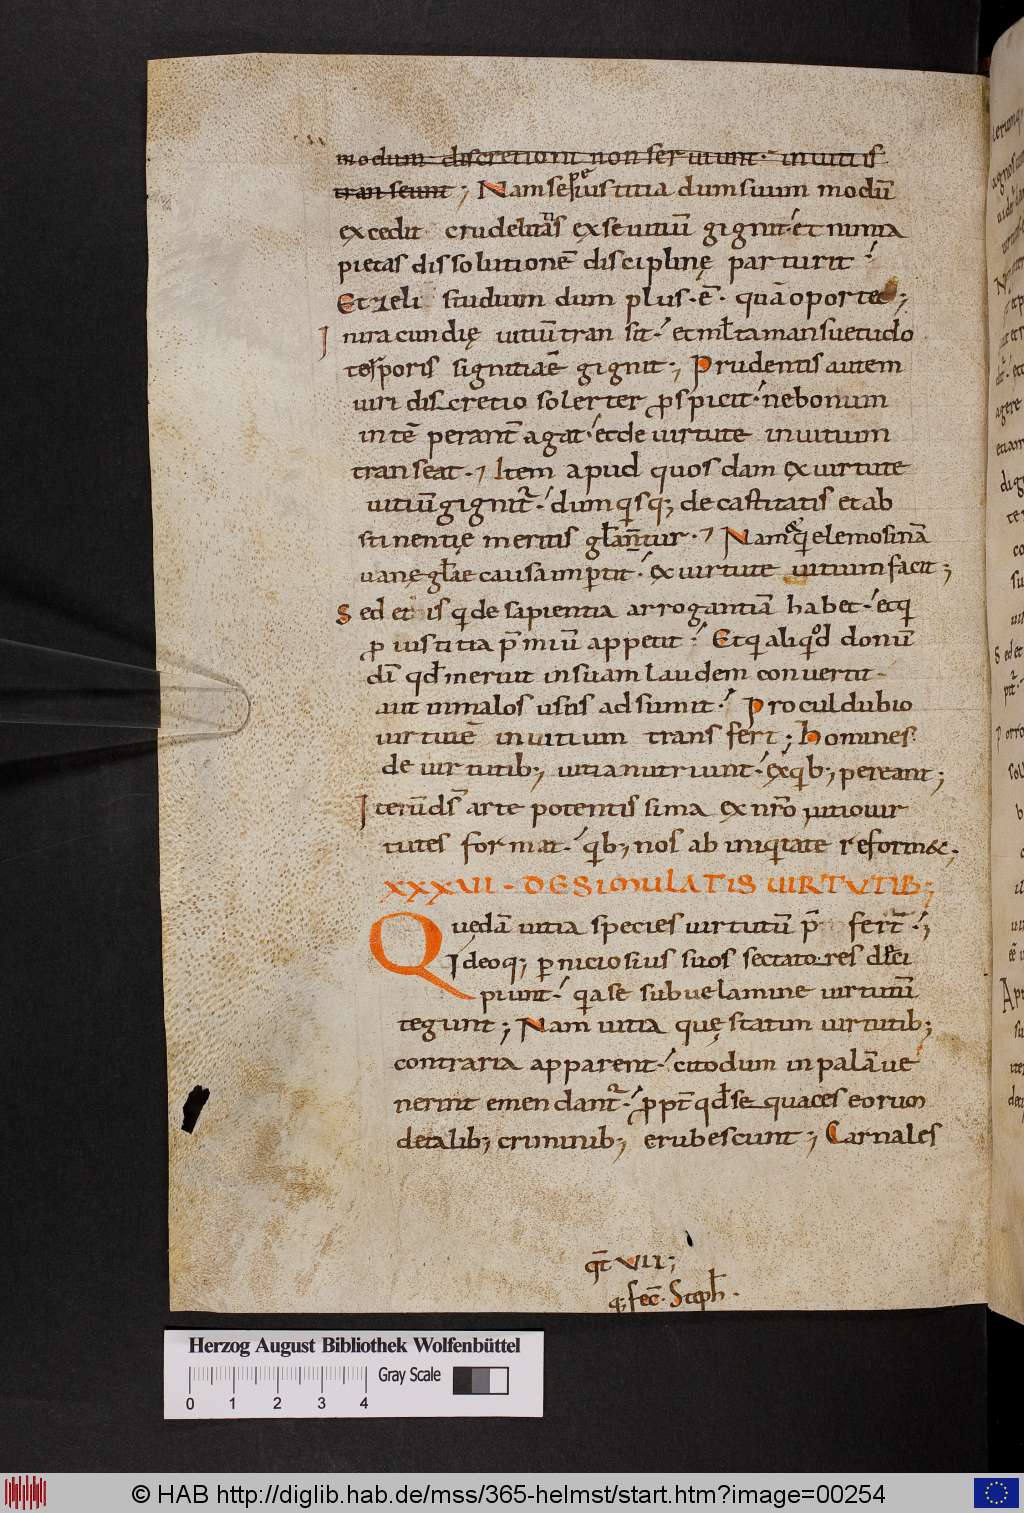 modum discretioni non seruiunt · in uitiis
transeunt ; Nam sepe iustitia dum suum modū
excedit crudelitatis ex se uitiū gignit · et nimia
pietas dissolutionē disciplinę parturit ·
Et zeli studium dum plus · ē · quā oportet ;
Iniracundię uitiū transit · et ml̄ta mansuetudo
torporis signitiaē gignit ; Prudentis autem
uiri discretio solerter ꝓspicit · ne bonum
intē peranť agat · et de uirtute in uitium
transeat · Item apud quosdam ex uirtute
uitiū gignit᷑ · dum qisq; de castitatis et ab
stinentię meritis gl̄antur · Nam & qi elemosinā
uanę gl̄ae causa imꝑtit · ex uirtute uitium facit ;
Sed et is qi de sapientia arrogantiā habet · et qi
ꝓ iustitia p̄miū appetit · Et qi aliqod donū
dī qd̄ meruit in suam laudem conuertit ·
aut in malos usus adsumit · Procul dubio
uirtutē in uitium transfert ; Homines
de uirtutib; uitia nutriunt · ex qib; pereant ;
Iterū ds̄ arte potentissima ex nr̄o uitio uir
tutes format · qib; nos ab iniqitate reformet ·
XXXVII · DE SIMULATIS VIRTVTIB;
Quedā uitia species uirtutū p̄ ferť ;
Ideoq; ꝑniciosius suos sectatores deci
piunt · qia se sub uelamine uirtutū
tegunt ; Nam uitia quę statim uirtutib;
contraria apparent · cito dum in palā ue
nerint emendanť · ꝓpť qd̄ sequaces eorum
de talib; criminib; erubescunt ; Carnales
qt̄ VII ;
q; fec̄ · Steph̄ ·
Herzog August Bibliothek Wolfenbüttel
Gray Scale
0 1 2 3 4
© HAB http://diglib.hab.de/mss/365-helmst/start.htm?image=00254